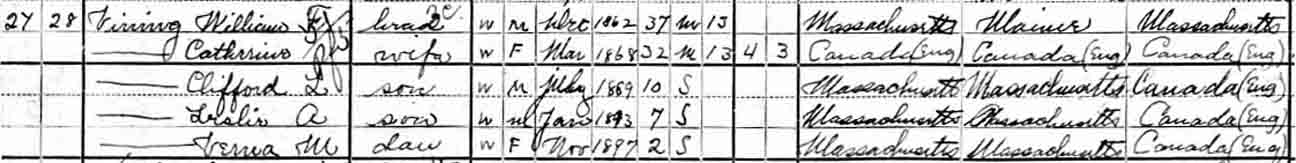 27 28 Vining William F head W M Dec 1862 37 M 13 Massachusetts Maine Massachusetts
— Catherine wife W F Mar 1868 32 M 13 4 3 Canada (Eng) Canada (Eng) Canada (Eng)
— Clifford L son W M July 1889 10 S Massachusetts Massachusetts Canada (Eng)
— Leslie A son W M Jan 1893 7 S Massachusetts Massachusetts Canada (Eng)
— Verna M dau W F Nov 1897 2 S Massachusetts Massachusetts Canada (Eng)